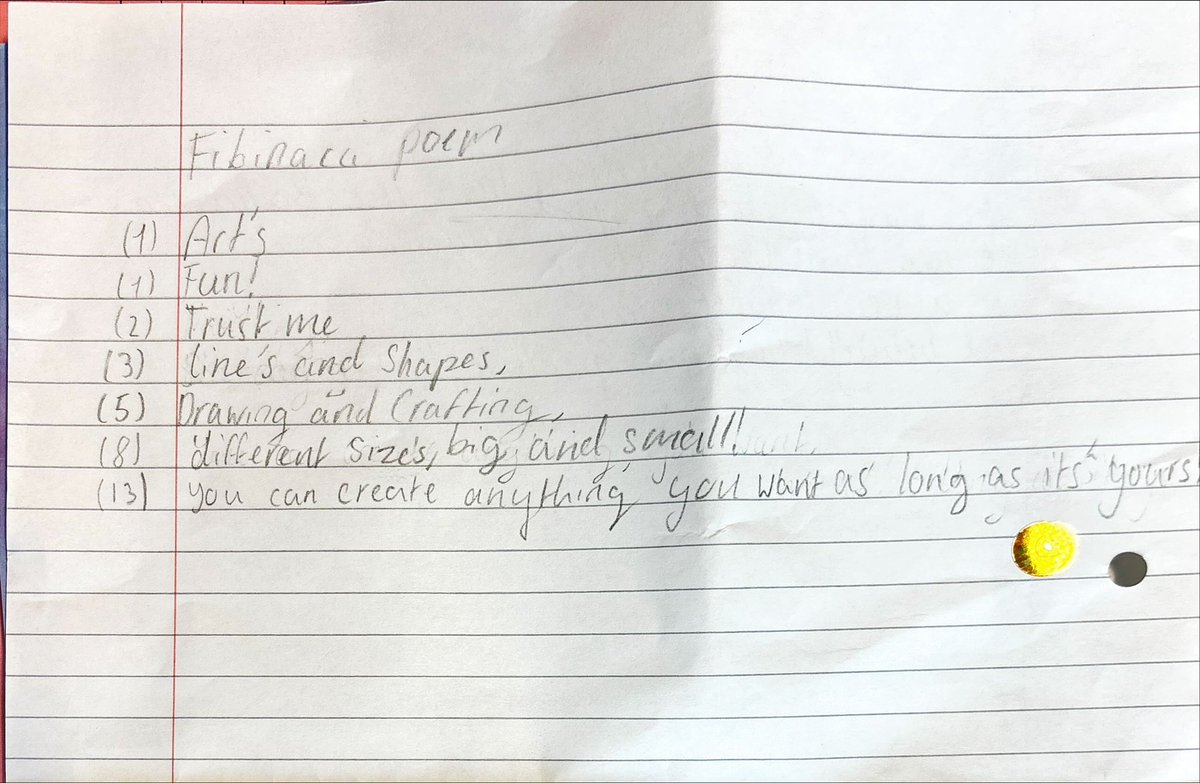 Fibinacci poem
(1) Art's
(1) Fun!
(2) Trust me
(3) line's and Shapes,
(5) Drawing and Crafting,
(8) different Size's, big and small!
(13) you can create anything you want as long as its yours!